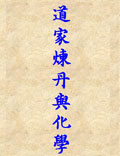 道家煉丹與化學